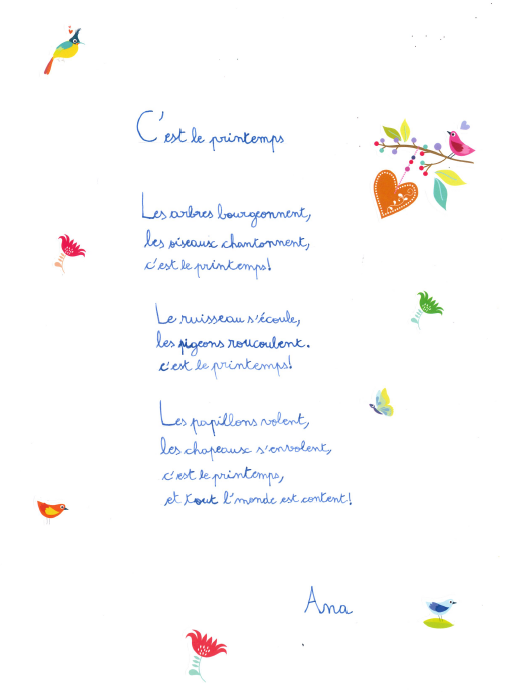 C'est le printemps
Les arbres bourgeonnent,
les oiseaux chantonnent,
c'est le printemps!
Le ruisseau s'écoule,
les pigeons roucoulent.
c'est le printemps!
Les papillons volent,
les chapeaux s'envolent,
c'est le printemps,
et tout l'monde est content!
Ana